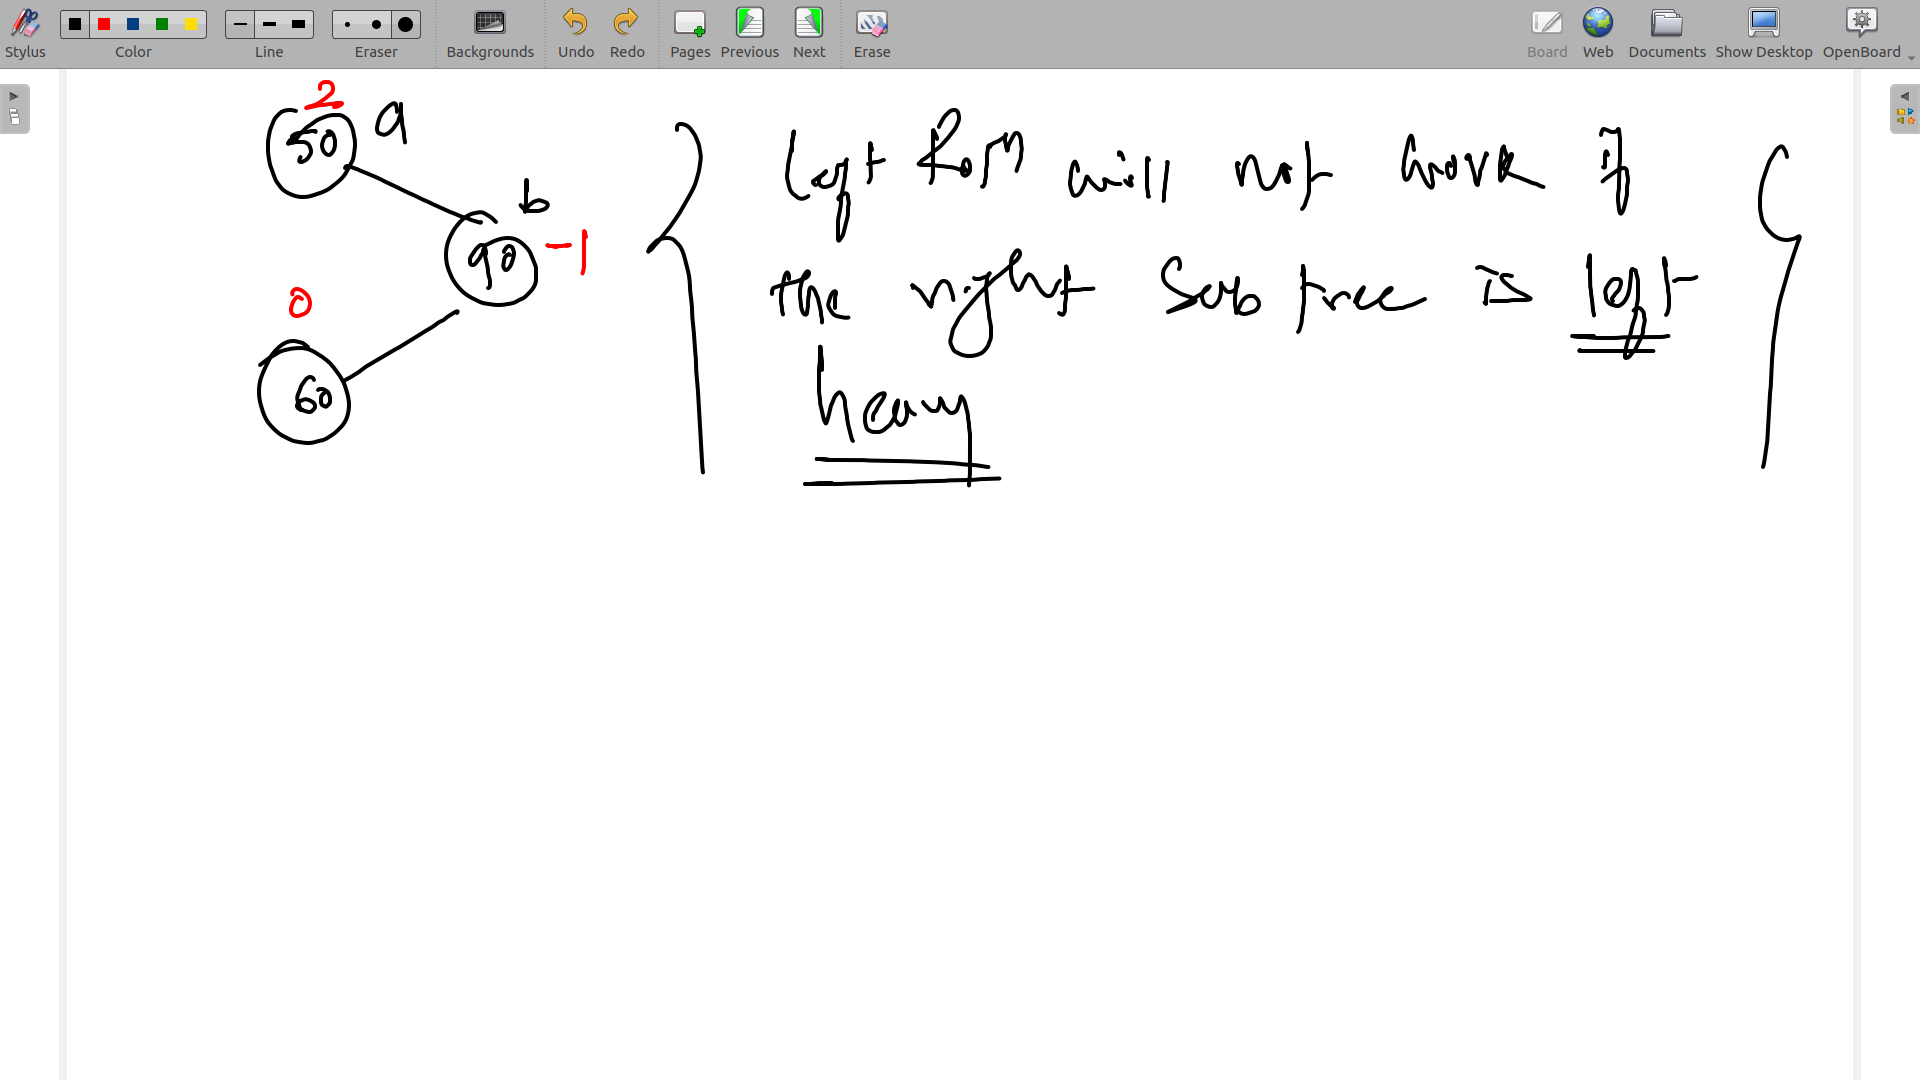 Stylus Color Line Eraser Backgrounds Undo Redo Pages Previous Next Erase Board Web Documents Show Desktop OpenBoard
2
50 a
b
90 -1
0
60
left Rotn will not work if
the right Sub tree is left
heavy